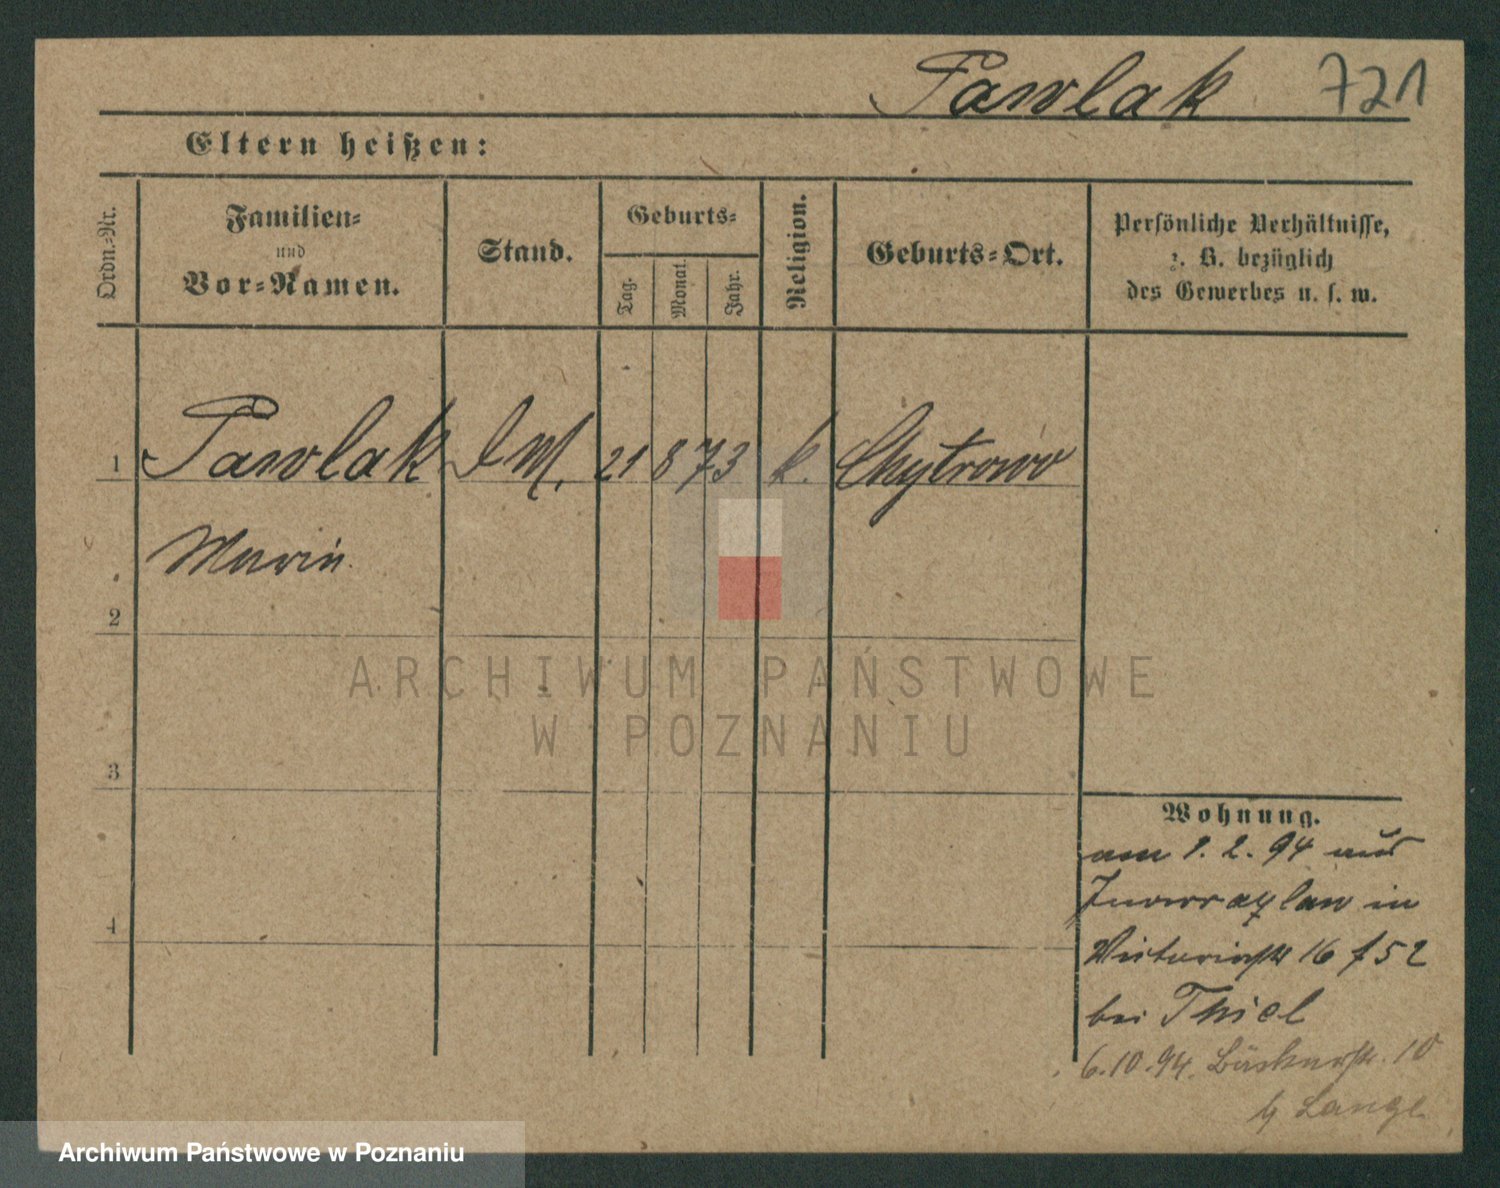 Pawlak 721
Eltern heißen:
Ordn.-Nr.
Familien-
und
Vor-Namen.
Stand.
Geburts-
Tag.
Monat.
Jahr.
Religion.
Geburts-Ort.
Persönliche Verhältnisse,
z. B. bezüglich
des Gewerbes u. s. w.
1 Pawlak D M. 21 8 73 k. Chytrowo
Maria
2
ARCHIWUM PAŃSTWOWE
W POZNANIU
3
Wohnung.
am 1. 2. 94 aus
Inowrazlaw in
Victoriastr 16
4
bei Thiel
6.10.94. Bäckerstr. 10
b Lange
Archiwum Państwowe w Poznaniu